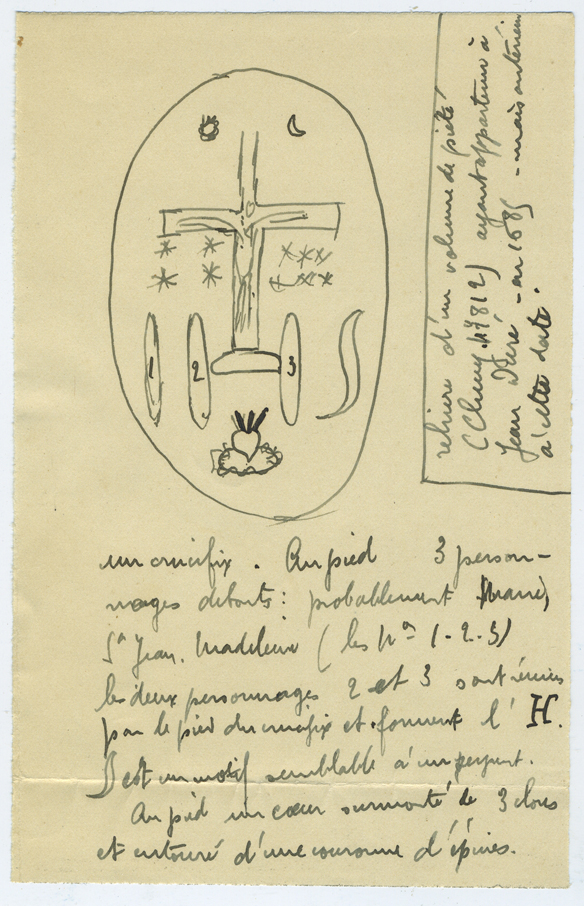 reliure d'un volume de piété
(Cluny 17812) ayant appartenu à
Jean - en 1685 - mais antérieur
à cette date.
1 2 3
un crucifix. Au pied 3 person-
nages debouts: probablement Marie,
St Jean. Madeleine (les nos 1-2-3)
les deux personnages 2 et 3 sont réunis
par le pied du crucifix et forment l'H.
S est un motif semblable à un serpent.
Au pied un cœur surmonté de 3 clous
et entouré d'une couronne d'épines.